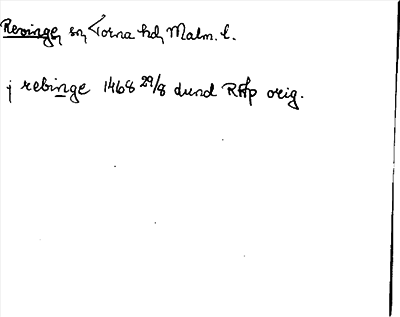 Revinge, sn, Torna hd, Malm. l.
j rebinge 1468 29/8 dund RAp orig.